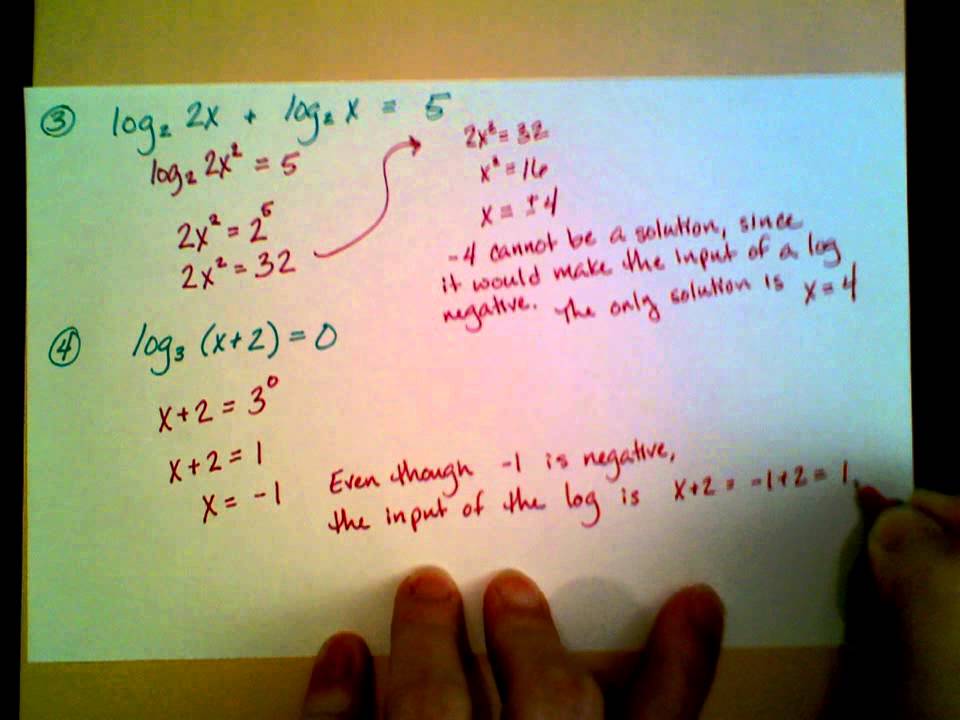 ③ log₂ 2x + log₂ x = 5
log₂ 2x² = 5
2x² = 2⁵
2x² = 32
2x² = 32
x² = 16
x = ±4
-4 cannot be a solution, since
it would make the input of a log
negative. The only solution is x = 4
④ log₃ (x+2) = 0
x+2 = 3⁰
x+2 = 1
x = -1
Even though -1 is negative,
the input of the log is x+2 = -1+2 = 1.